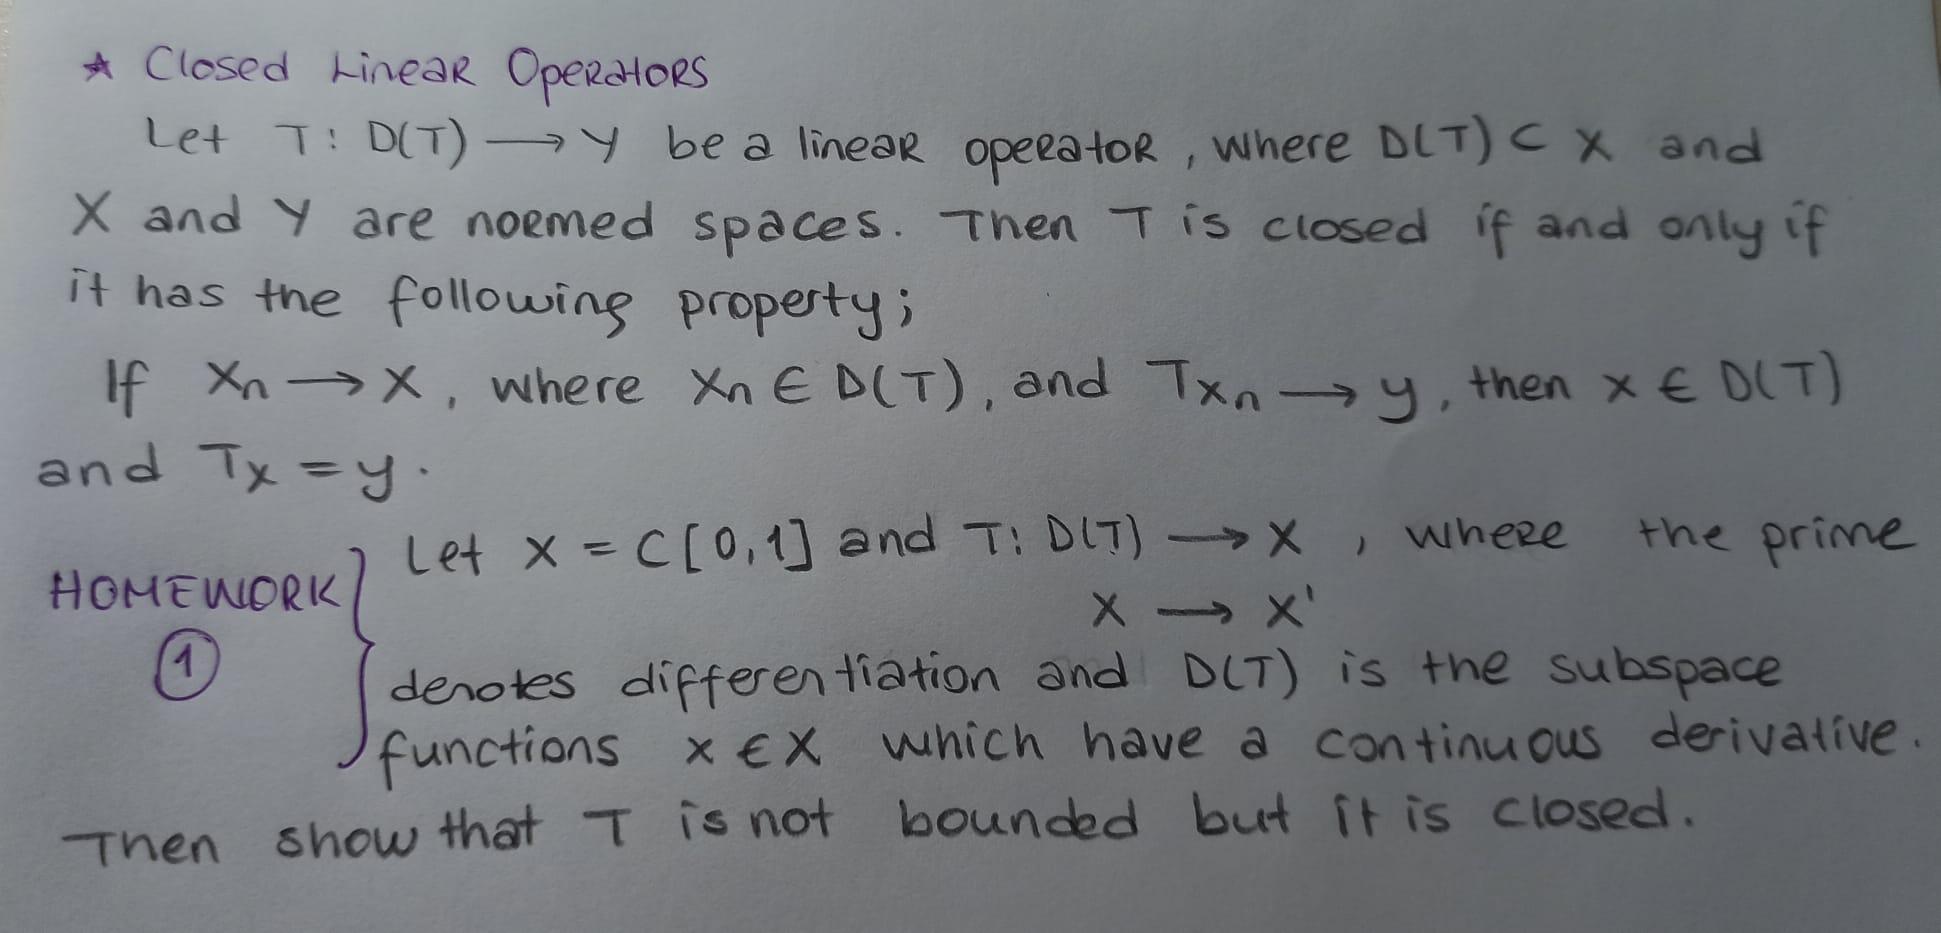 ☆ Closed Linear Operators
Let T: D(T) → Y be a linear operator, where D(T) ⊂ X and
X and Y are normed spaces. Then T is closed if and only if
it has the following property;
If xn → x, where xn ∈ D(T), and Txn → y, then x ∈ D(T)
and Tx = y.
Let X = C[0,1] and T: D(T) → X, where the prime
x → x'
HOMEWORK
①
denotes differentiation and D(T) is the subspace
functions x ∈ X which have a continuous derivative.
Then show that T is not bounded but it is closed.